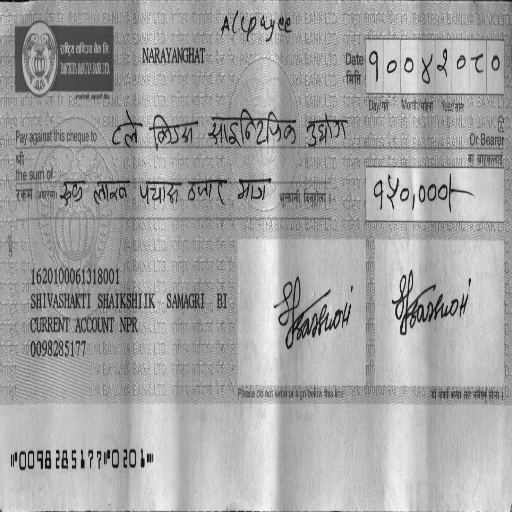 A/C payee
राष्ट्रिय वाणिज्य बैंक लि.
RASTRIYA BANIJYA BANK LTD.
NARAYANGHAT
Date
मिति
१००४२०८०
Day/गते Month/महिना Year/साल
Pay against this cheque to
साइन्टिफिक उद्योग
Or Bearer
श्री
the sum of
रकम
एक लाख पचास हजार मात्र
१५०,०००/-
1620100061318001
SHIVASHAKTI SHAIKSHIIK SAMAGRI BI
CURRENT ACCOUNT NPR
0098285177
Please do not write or sign below this line
⑈0098285177⑈0201⑈